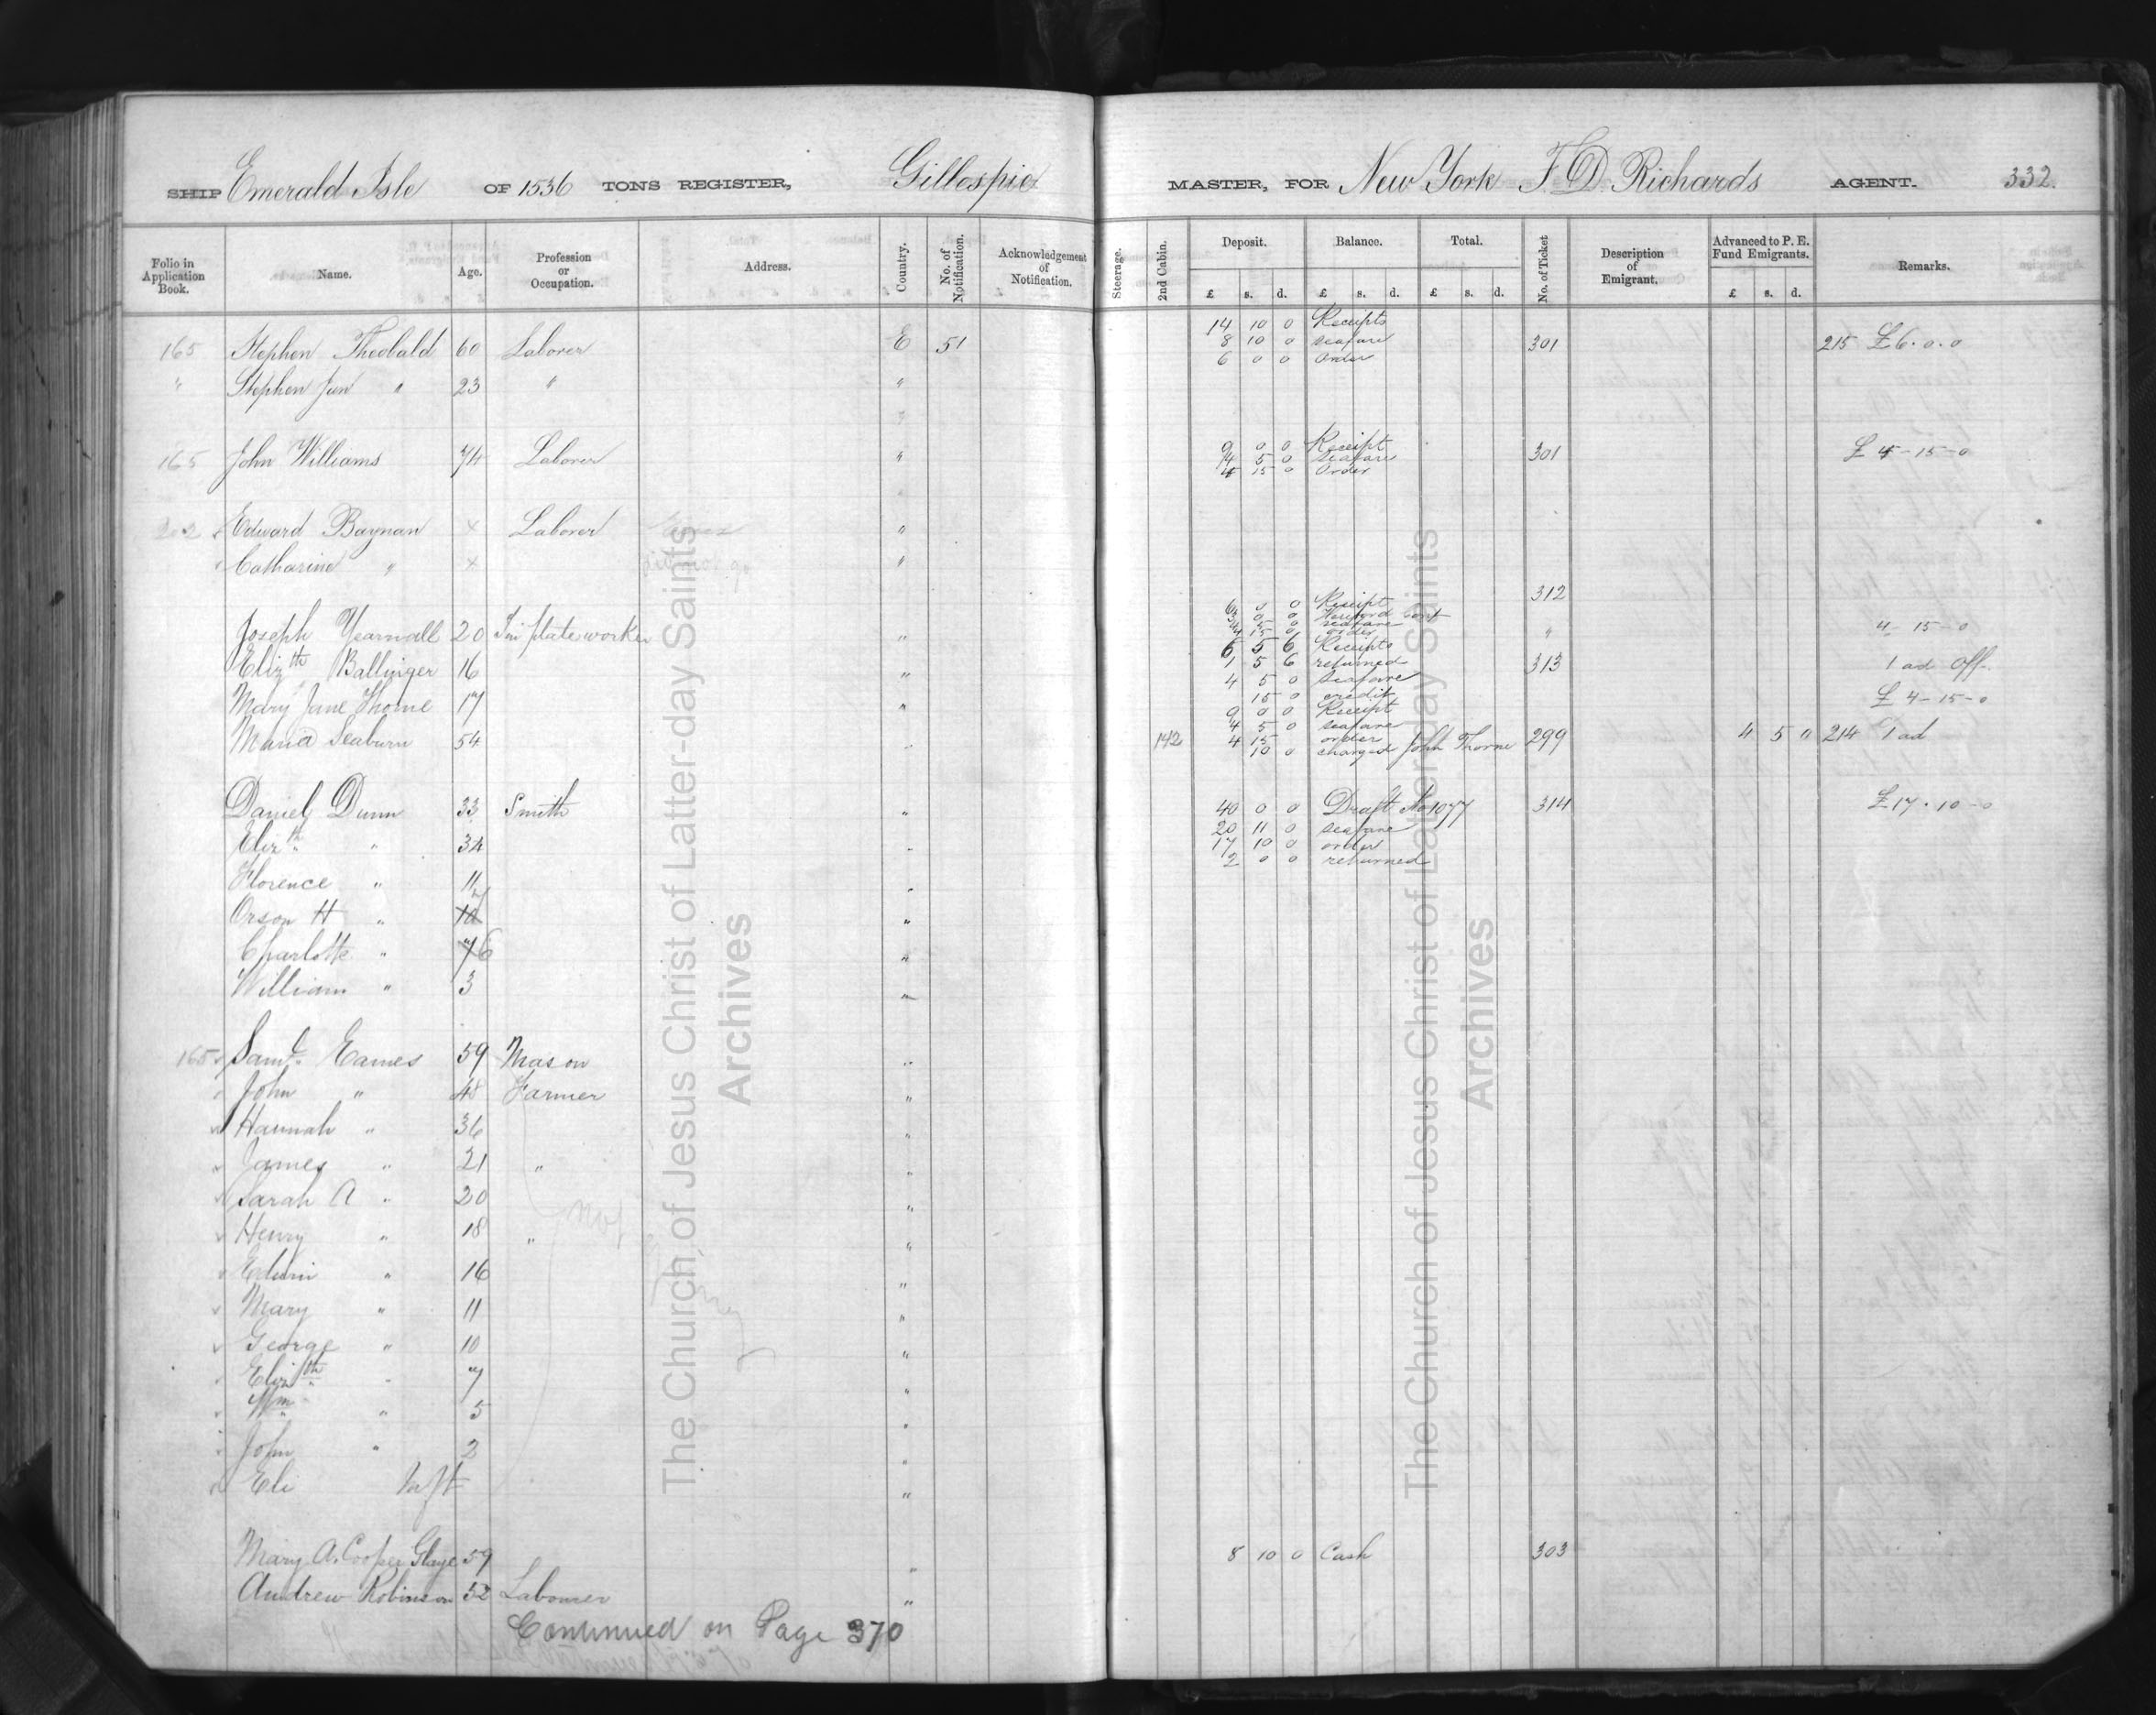 SHIP Emerald Isle OF 1536 TONS REGISTER, Gillespie MASTER, FOR New York F. D. Richards AGENT. 332.
Folio in Application Book. Name. Age. Profession or Occupation. Address. Country. No. of Notification. Acknowledgement of Notification. Steerage. 2nd Cabin. Deposit. Balance. Total. No. of Ticket Description of Emigrant. Advanced to P. E. Fund Emigrants. Remarks.
£ s. d. £ s. d. £ s. d. £ s. d.
14 10 0 Receipts
165 Stephen Theobald 60 Laborer E 51 8 10 0 seafare 301 215 £6.0.0
6 0 0 order
" Stephen Jun " 23 " "
9 0 0 Receipt
165 John Williams 74 Laborer " 4 5 0 seafare 301 £4-15-0
4 15 0 order
202 Edward Baynan x Laborer "
Catharine " x did not go "
312
6 0 0 Receipt
3 0 0
4 5 0 seafare
Joseph Yearnall 20 Tin plate worker " 4 15 0 order " 4-15-0
6 5 6 Receipts
Elizth Ballinger 16 " 1 5 6 returned 313 1 ad off.
4 5 0 seafare
15 0 credit
Mary Jane Thorne 17 " 9 0 0 Receipt £4-15-0
4 5 0 seafare
Maria Seaburn 54 " 142 4 15 order 299 4 5 0 214 1 ad
10 0 charged John Thorne
Daniel Dunn 33 Smith " 40 0 0 Draft No 1077 314 £17.10-0
20 11 0 seafare
Elizth " 34 " 17 10 0 order
2 0 0 returned
Florence " 11 "
Orson H " "
Charlotte " 7 6 "
William " 3 "
165 Saml. Eames 59 Mason "
John " 48 Farmer "
Hannah " 36 "
James " 21 " "
Sarah A " 20 "
Henry " 18 " "
Edwin " 16 "
Mary " 11 "
George " 10 "
Elizth " 7 "
Wm " 5 "
John " 2 "
Eli Inft "
Mary A. Cooper Glaye 59 " 8 10 0 Cash 303
Andrew Robinson 52 Labourer "
Continued on Page 370
The Church of Jesus Christ of Latter-day Saints
Archives
The Church of Jesus Christ of Latter-day Saints
Archives